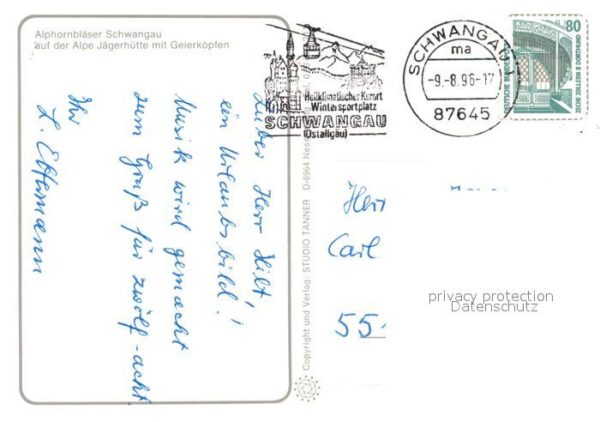 Alphornbläser Schwangau
auf der Alpe Jägerhütte mit Geierköpfen
Lieber Herr Hilt,
ein Urlaubsbild!
Musik wird gemacht
zum Gruß für zwölf-acht.
Ihr
L. Ettemann
Copyright und Verlag: STUDIO TANNER D-8964 Ness
Heilklimatischer Kurort
Wintersportplatz
SCHWANGAU
(Ostallgäu)
SCHWANGAU 1
ma
-9.-8.96-17
87645
80
DEUTSCHE BUNDESPOST
ZECHE ZOLLERN II DORTMUND
Herr
Carl
55
privacy protection
Datenschutz